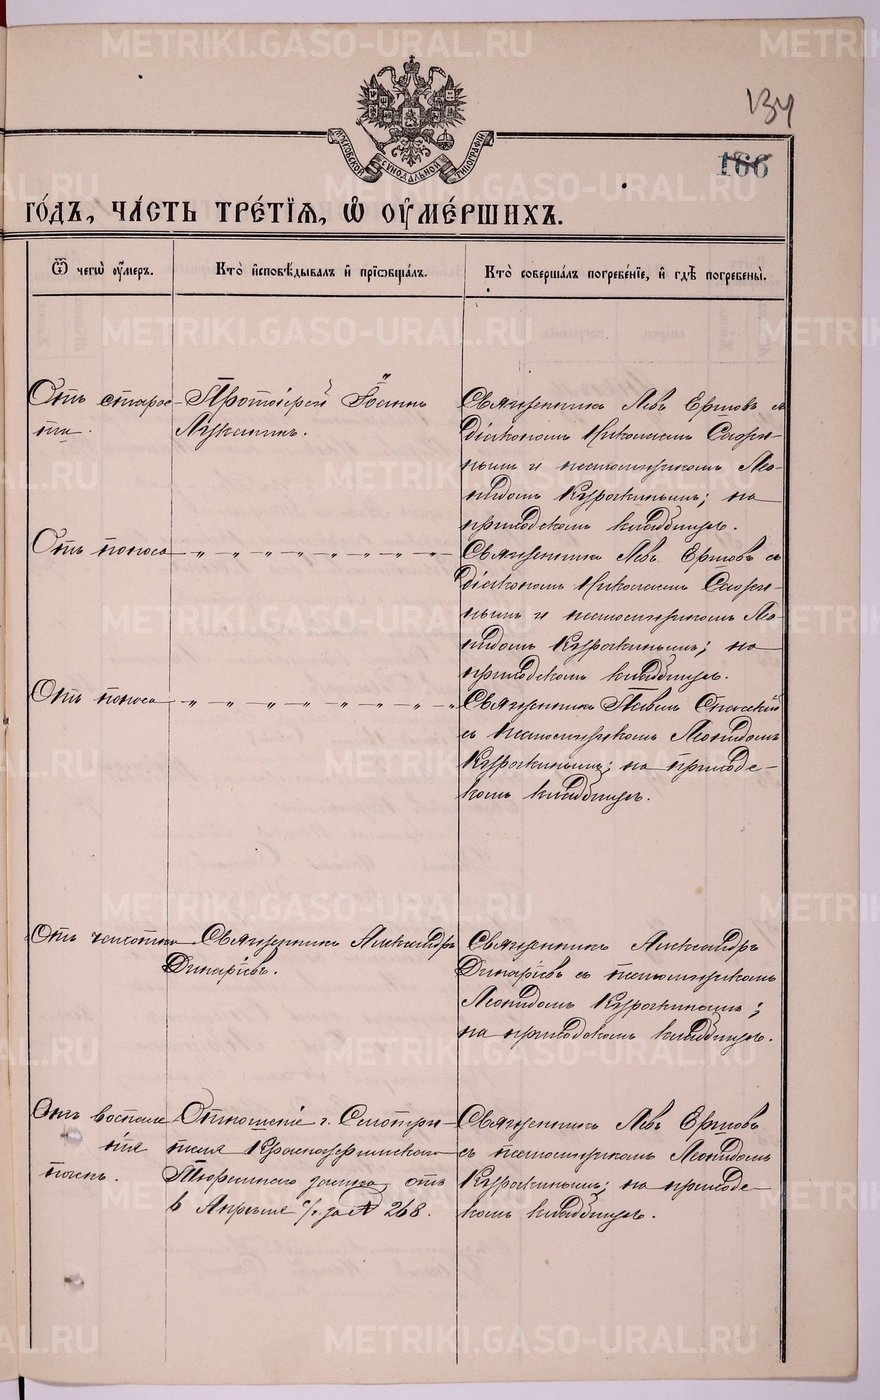 134
166
МОСКОВСКОЙ СѴНОДАЛЬНОЙ ТИПОГРАФІИ
ГО́ДЪ, ЧА́СТЬ ТРЕ́ТІѦ, Ѡ҆ ОУ҆МЕ́РШИХЪ.
Ѿ чегѡ̀ оу҆́меръ.
Кто̀ и҆сповѣ́дывалъ и҆ прїѡбща́лъ.
Кто̀ соверша́лъ погребе́нїе, и҆ гдѣ̀ погребены̀.
Отъ старос-
ти.
Протоіерей Іоаннъ
Луканинъ.
Священникъ Левъ Ершовъ съ
діакономъ Николаемъ
нымъ и псаломщикомъ Лео-
нидомъ Куракинымъ; на
приходскомъ кладбищѣ.
Отъ поноса
Священникъ Левъ Ершовъ съ
діакономъ Николаемъ
нымъ и псаломщикомъ Лео-
нидомъ Куракинымъ; на
приходскомъ кладбищѣ.
Отъ поноса
Священникъ Павелъ Спасскій
съ псаломщикомъ Леонидомъ
Куракинымъ; на приход-
скомъ кладбищѣ.
Отъ чахотки
Священникъ Александръ
Динаріевъ.
Священникъ Александръ
Динаріевъ съ псаломщикомъ
Леонидомъ Куракинымъ;
на приходскомъ кладбищѣ.
Отъ воспале
нія
почекъ.
Отношеніе г. Смотри-
теля Красноуфимскаго
Тюремнаго замка отъ
6 Апрѣля с/г за № 268.
Священникъ Левъ Ершовъ
съ псаломщикомъ Леонидомъ
Куракинымъ; на приход-
скомъ кладбищѣ.
METRIKI.GASO-URAL.RU